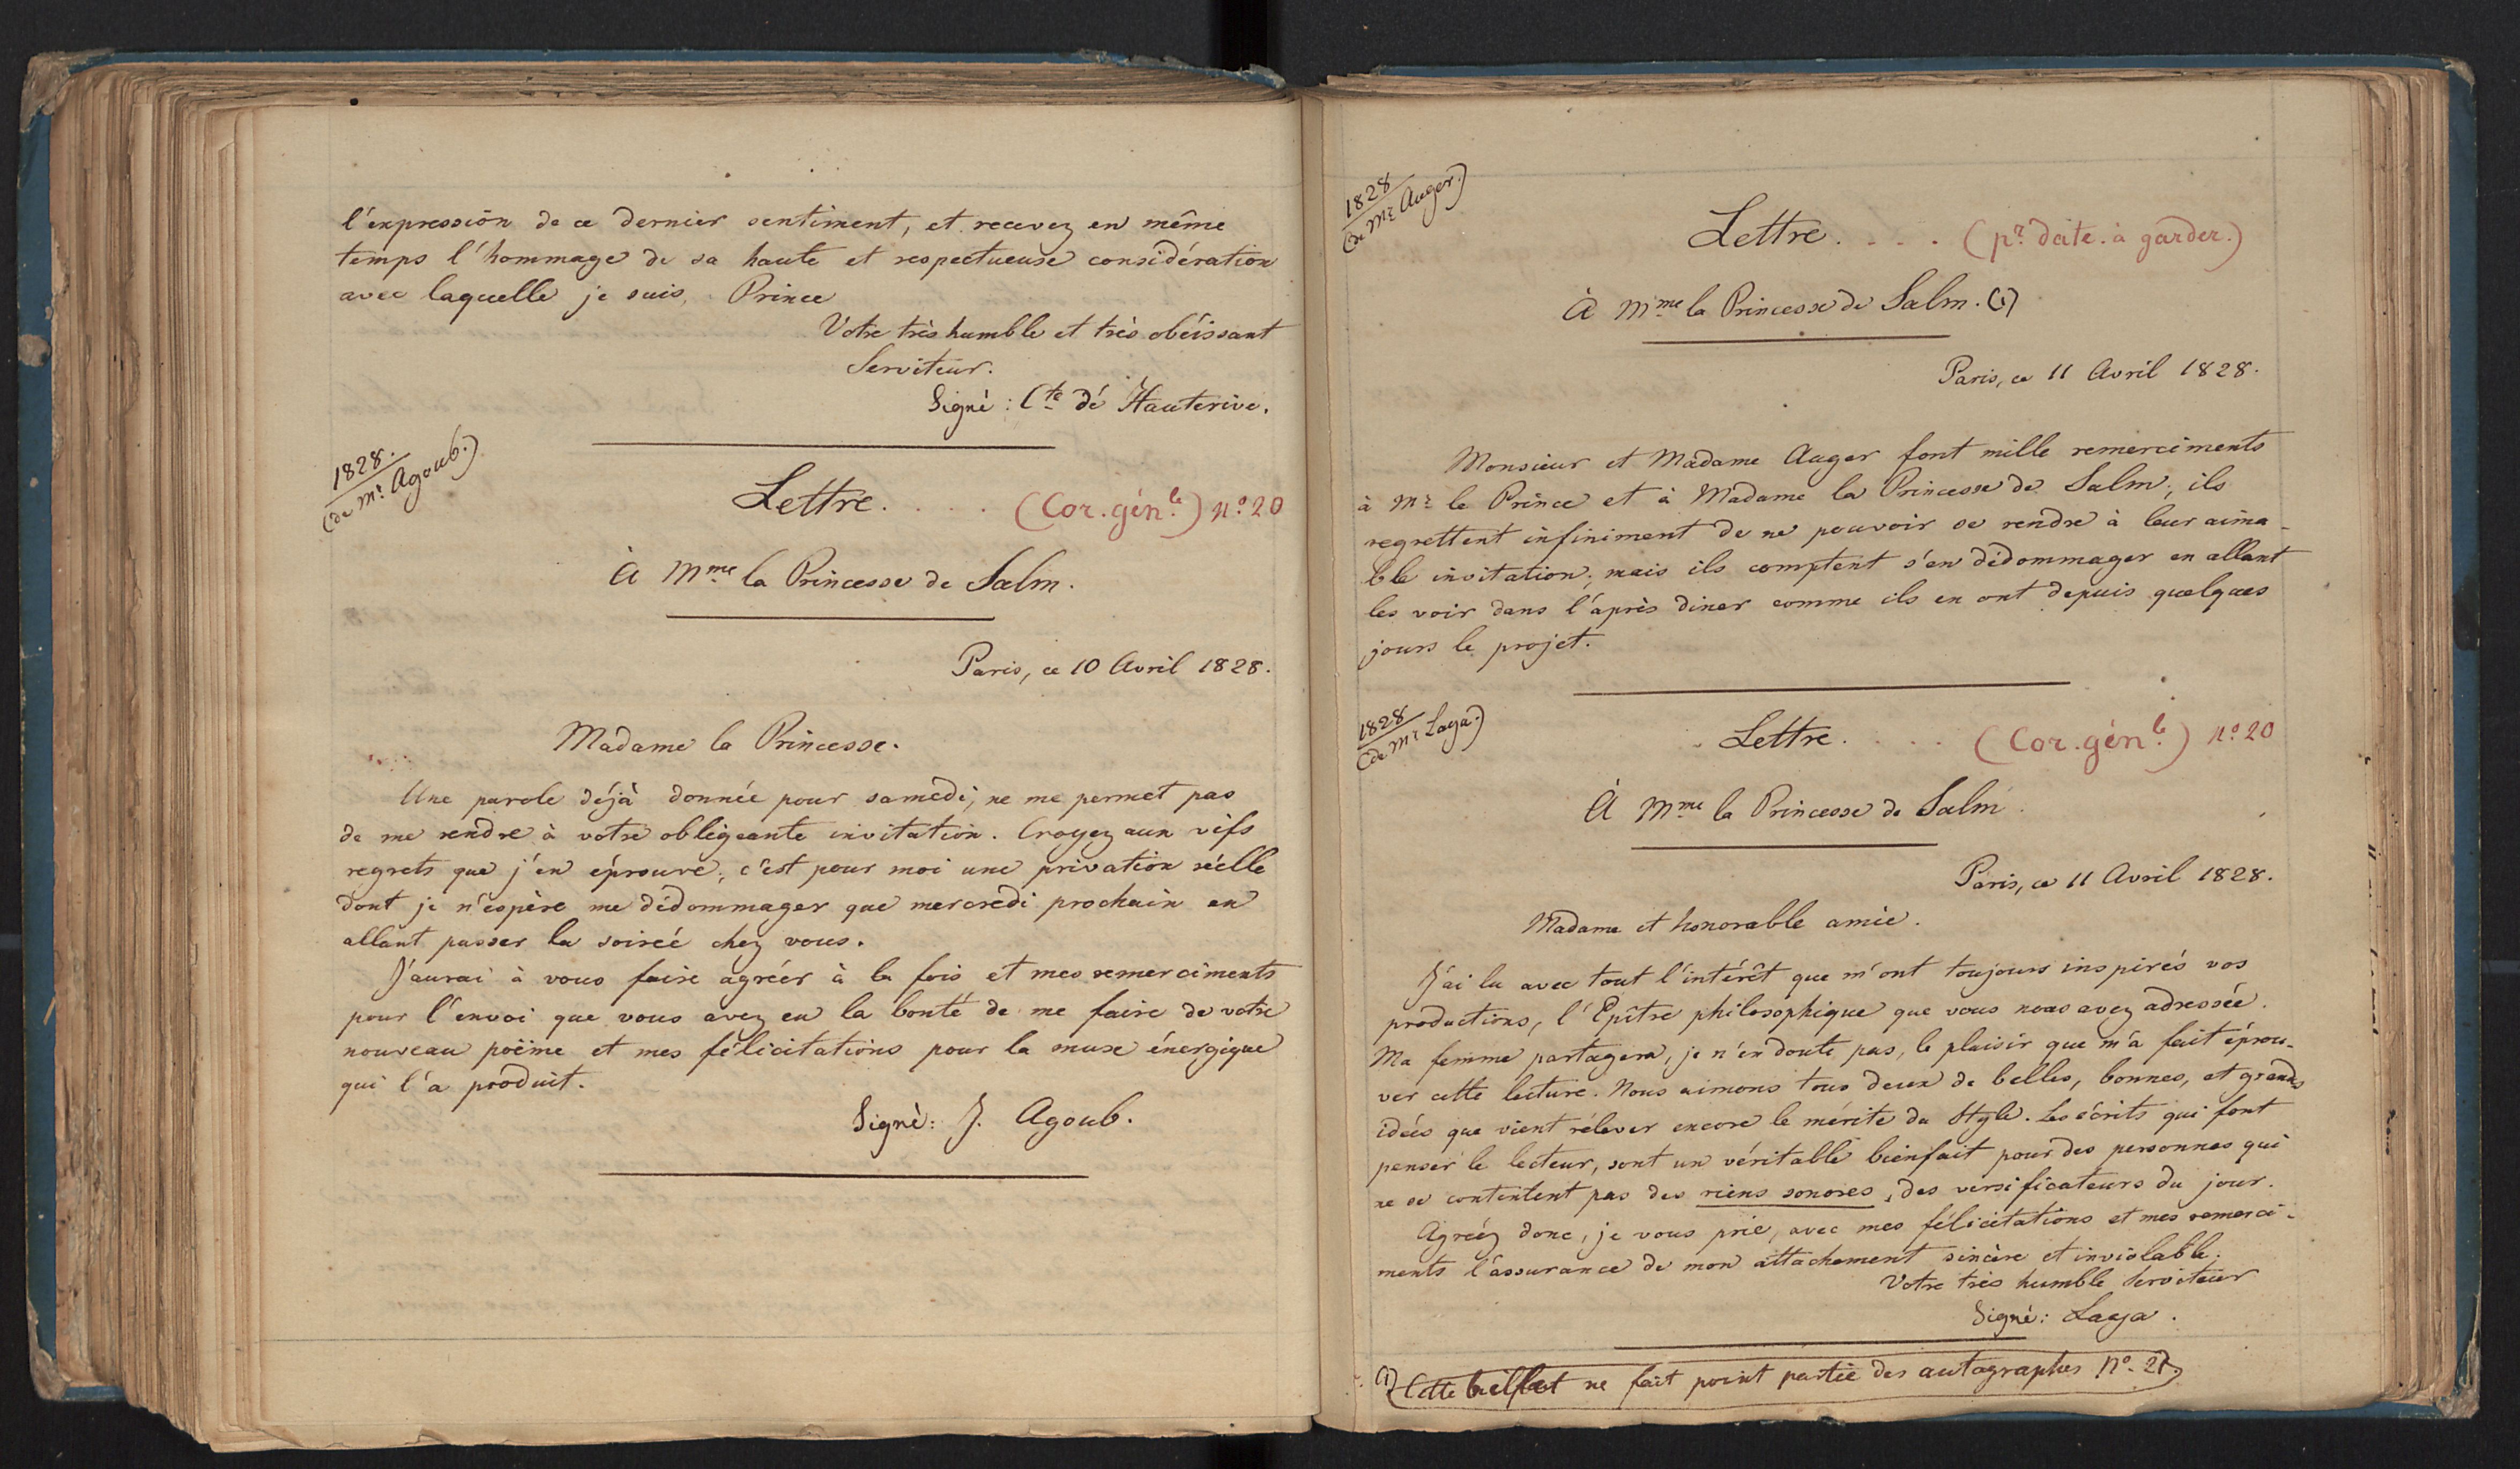 l'expression de ce dernier sentiment, et recevez en même
temps l'hommage de sa haute et respectueuse considération
avec laquelle je suis, Prince
Votre très humble et très obéissant
Serviteur.
Signé : Cte dé Hauterive.
1828.
(de Mr. Agoub.)
Lettre. . . . . (Cor. génle.) No. 20
À Mme la Princesse de Salm.
Paris, ce 10 Avril 1828.
Madame la Princesse.
Une parole déjà donnée pour samedi, ne me permet pas
de me rendre à votre obligeante invitation. Croyez aux vifs
regrets que j'en éprouve; c'est pour moi une privation réelle
dont je n'espère me dédommager que mercredi prochain en
allant passer la soireé chez vous.
J'aurai à vous faire agréer à la fois et mes remerciments
pour l'envoi que vous avez eu la bonté de me faire de votre
nouveau poëme et mes félicitations pour la muse énergique
qui l'a produit.
Signé: J. Agoub.
1828
(de Mr. Auger.)
Lettre. . . . (pr. date. à garder.)
À Mme la Princesse de Salm. (1)
Paris, ce 11 Avril 1828.
Monsieur et Madame Auger font mille remerciments
à Mr. le Prince et à Madame la Princesse de Salm; ils
regrettent infiniment de ne pouvoir se rendre à leur aima-
ble invitation; mais ils comptent s'en dédommager en allant
les voir dans l'après diner comme ils en ont depuis quelques
jours le projet.
1828
(de Mr Laya.)
Lettre. . . . (Cor. génle.) No. 20
À Mme la Princesse de Salm.
Paris, ce 11 Avril 1828.
Madame et honorable amie.
J'ai lu avec tout l'intérêt que m'ont toujours inspirés vos
productions, l'Epître philosophique que vous nous avez adressée.
Ma femme partagera, je n'en doute pas, le plaisir que m'a fait éprou-
ver cette lecture. Nous aimons tous deux de belles, bonnes, et grands
idées que vient rélever encore le mérite du Style. Les écrits qui font
penser le lecteur, sont un véritable bienfait pour des personnes qui
ne se contentent pas des riens sonores, des versificateurs du jour.
Agréez donc, je vous prie, avec mes félicitations et mes remerci-
ments l'assurance de mon attachement sincère et inviolable.
Votre très humble Serviteur
Signé: Laya.
(1) Cette billet ne fait point partie des autographes No. 21.